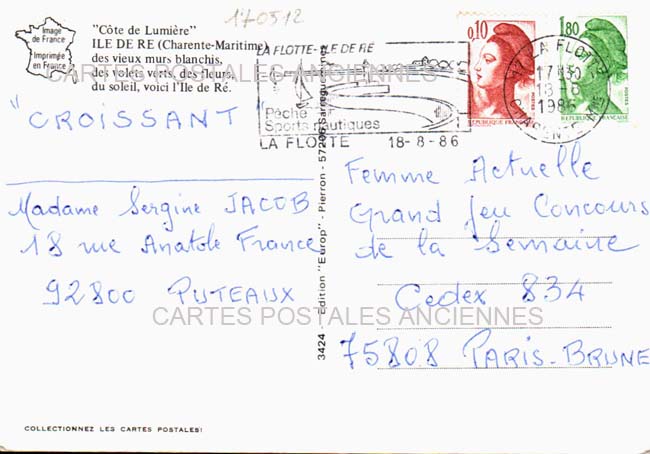 170512
Image
de France
Imprimée
en France
"Côte de Lumière"
ILE DE RE (Charente-Maritime)
des vieux murs blanchis,
des volets verts, des fleurs,
du soleil, voici l'Ile de Ré.
CARTES POSTALES ANCIENNES
LA FLOTTE-ILE DE RE
Pêche
Sports nautiques
LA FLOTTE 18-8-86
0,10
REPUBLIQUE FRANÇAISE
POSTES
1,80
REPUBLIQUE FRANÇAISE
POSTES
LA FLOTTE
17H30
18-8
1986
"CROISSANT"
Madame Sergine JACOB
18 rue Anatole France
92800 PUTEAUX
3424 - Edition "Europ" - Pierron - 57206 Sarreguemines
Femme Actuelle
Grand Jeu Concours
de la Semaine
Cedex 834
75808 PARIS-BRUNE
CARTES POSTALES ANCIENNES
COLLECTIONNEZ LES CARTES POSTALES!